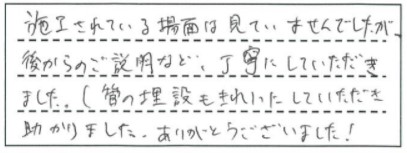 施工されている場面は見ていませんでしたが、
後からのご説明など、丁寧にしていただき
ました。(管の埋設もきれいにしていただき
助かりました。ありがとうございました!